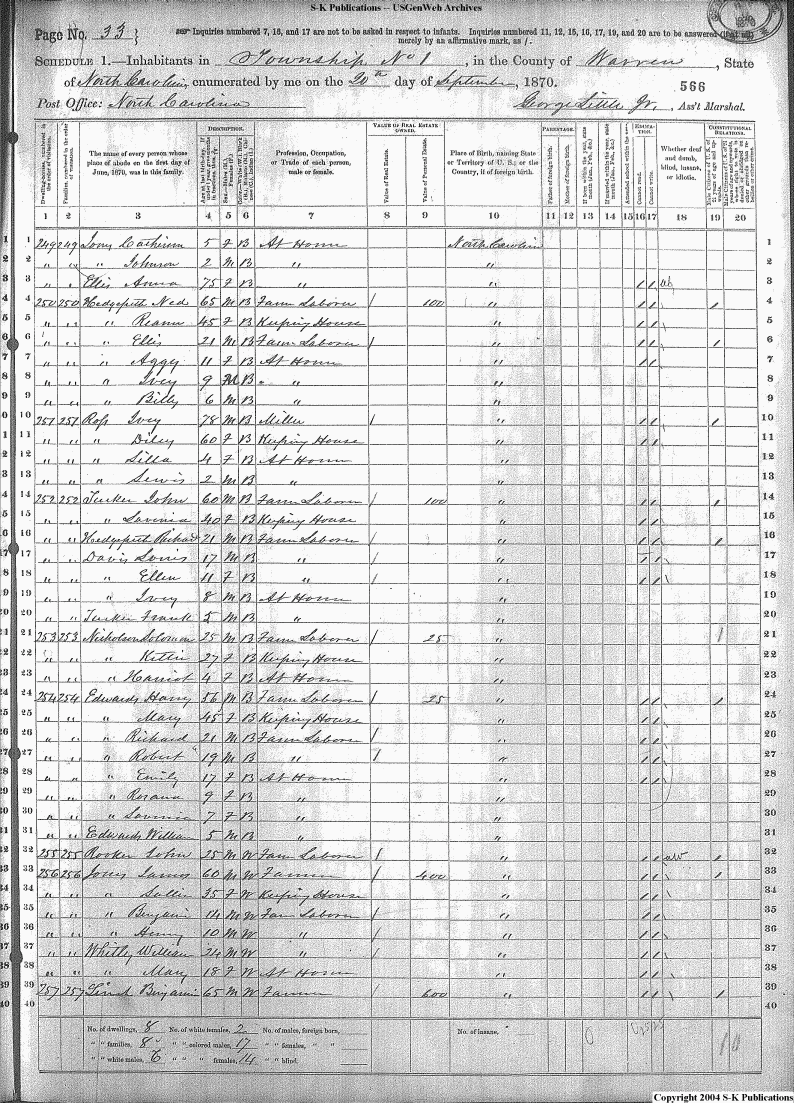 S-K Publications -- USGenWeb Archives
Page No. 33 } Inquiries numbered 7, 16, and 17 are not to be asked in respect to infants. Inquiries numbered 11, 12, 15, 16, 17, 19, and 20 are to be answered (if at all)
merely by an affirmative mark, as /.
SCHEDULE 1.—Inhabitants in Township No 1, in the County of Warren, State
of North Carolina, enumerated by me on the 20th day of September, 1870.
566
Post Office: North Carolina George Little Jr., Ass't Marshal.
DESCRIPTION. VALUE OF REAL ESTATE OWNED. PARENTAGE. EDUCATION. CONSTITUTIONAL RELATIONS.
Dwelling-houses, numbered in the order of visitation. Families, numbered in the order of visitation. The name of every person whose place of abode on the first day of June, 1870, was in this family. Profession, Occupation, or Trade of each person, male or female. Value of Real Estate. Value of Personal Estate. Place of Birth, naming State or Territory of U. S.; or the Country, if of foreign birth. Father of foreign birth. Mother of foreign birth. Attended school within the year. Cannot read. Cannot write. Whether deaf and dumb, blind, insane, or idiotic.
1 2 3 4 5 6 7 8 9 10 11 12 13 14 15 16 17 18 19 20
1 249 249 Jones 5 F B At Home North Carolina 1
2 " " " Johnson 2 M B " " 2
3 " " Ellis Anna 75 F B " " / / 3
4 250 250 Hedgepeth Ned 65 M B Farm Laborer / 100 " / / / 4
5 " " " 45 F B Keeping House " / / 5
6 " " " Ellis 21 M B Farm Laborer / " / / / 6
7 " " " Aggy 11 F B At Home " / / 7
8 " " " Ivey 9 M B " " 8
9 " " " Billy 6 M B " " 9
10 251 251 Ross Ivey 78 M B Miller / " / / / 10
11 " " " Diley 60 F B Keeping House " / / 11
12 " " " Lilla 4 F B At Home " 12
13 " " " Lewis 2 M B " " 13
14 252 252 Tucker John 60 M B Farm Laborer / 100 " / / / 14
15 " " " Lavinia 40 F B Keeping House " / / 15
16 " " Hedgepeth Richard 21 M B Farm Laborer / " / / / 16
17 " " Davis Louis 17 M B " / " / / 17
18 " " " Ellen 11 F B " / " / / 18
19 " " " Ivey 8 M B At Home " 19
20 " " Tucker Frank 5 M B " " 20
21 253 253 Nicholson Solomon 25 M B Farm Laborer / 25 " / 21
22 " " " Kittie 27 F B Keeping House " 22
23 " " " Harriot 4 F B At Home " 23
24 254 254 Edwards Harry 56 M B Farm Laborer / 25 " / / / 24
25 " " " Mary 45 F B Keeping House " / / 25
26 " " " Richard 21 M B Farm Laborer / " / / 26
27 " " " Robert 19 M B " / " / / 27
28 " " " Emily 17 F B At Home " / / 28
29 " " " Roxana 9 F B " " 29
30 " " " Lavinia 7 F B " " 30
31 " " Edwards William 5 M B " " 31
32 255 255 Rooker John 25 M W Farm Laborer / " / / / 32
33 256 256 Jones James 60 M W Farmer / 400 " / / / 33
34 " " " Sallie 35 F W Keeping House " / / 34
35 " " " Benjamin 14 M W Farm Laborer / " / / 35
36 " " " Henry 10 M W " / " / / 36
37 " " Whitley William 24 M W " / " / / 37
38 " " " Mary 18 F W At Home " / / 38
39 257 257 Benjamin 65 M W Farmer / 600 " / / / 39
40 40
No. of dwellings, 8 No. of white females, 2 No. of males, foreign born, No. of insane,
" " families, 8 " " colored males, 17 " " females, " "
" " white males, 6 " " " females, 14 " " blind.
Copyright 2004 S-K Publications